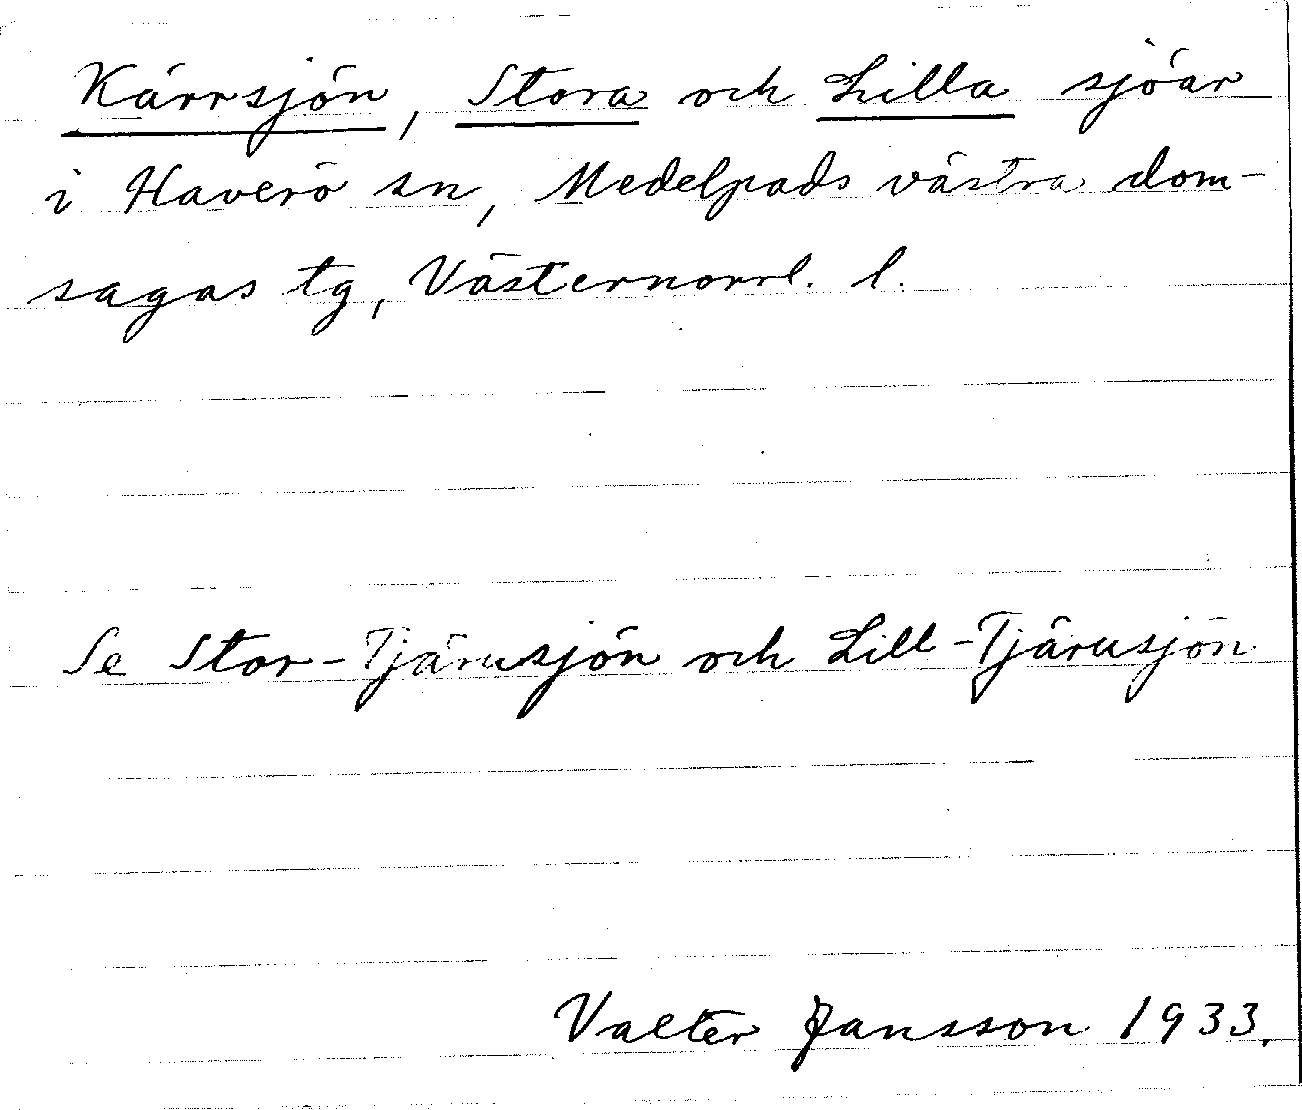 Kärrsjön, Stora och Lilla sjöar
i Haverö sn, Medelpads västra dom-
sagas tg, Västernorrl. l.
Se Stor-Tjärusjön och Lill-Tjärusjön
Valter Jansson 1933.